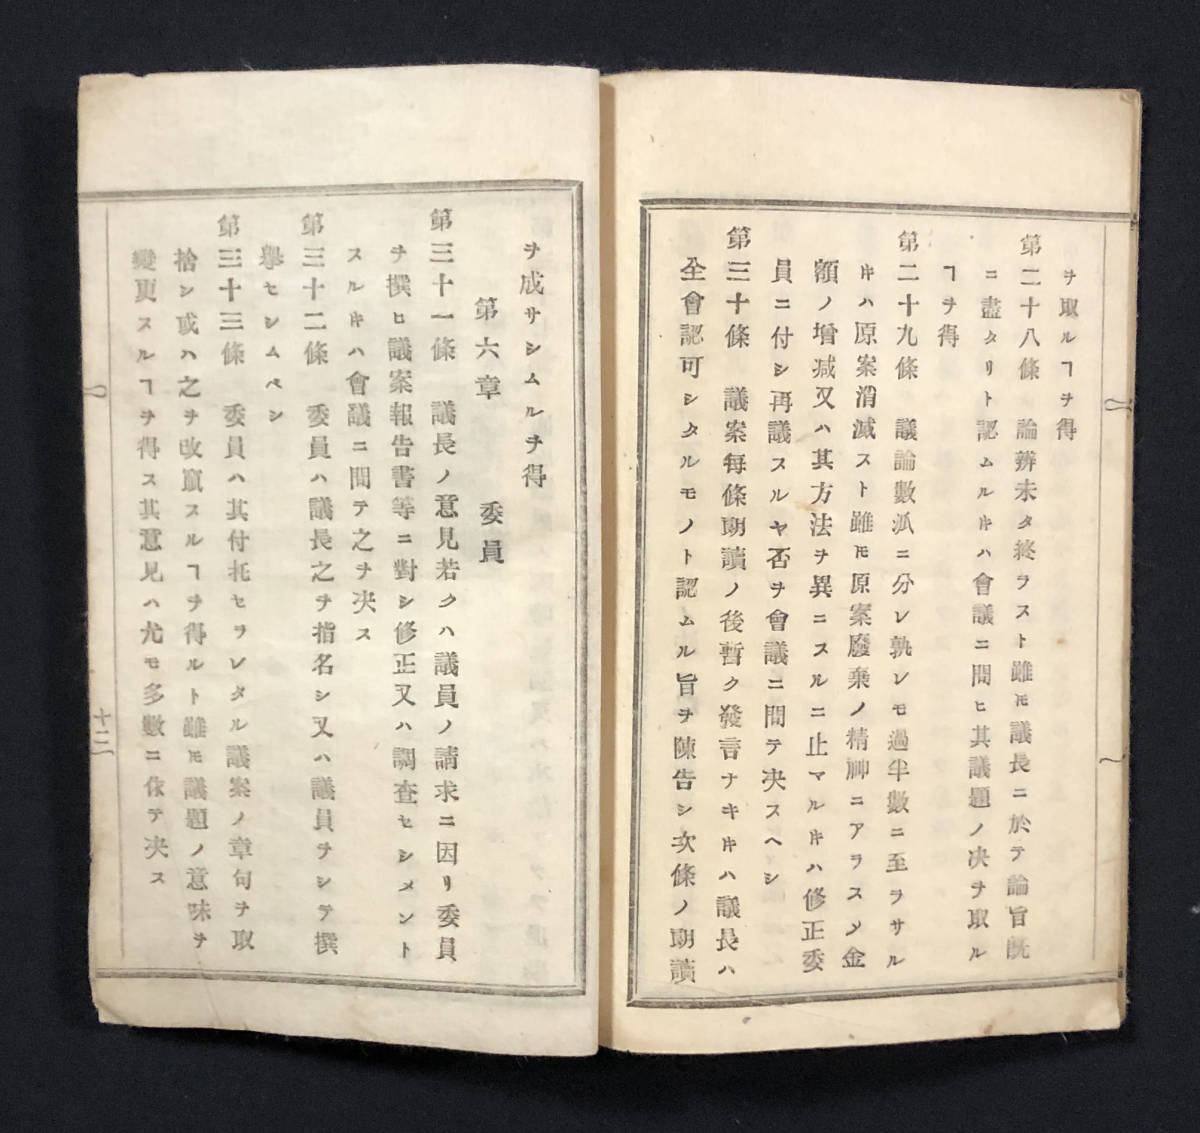 ヲ取ルヿヲ得
第二十八條 論辨未タ終ラスト雖モ議長ニ於テ論旨既
ニ盡タリト認ムルキハ會議ニ問ヒ其議題ノ决ヲ取ル
ヿヲ得
第二十九條 議論數派ニ分レ孰レモ過半數ニ至ラサル
キハ原案消滅スト雖モ原案廢棄ノ精神ニアラスメ金
額ノ增减又ハ其方法ヲ異ニスルニ止マルキハ修正委
員ニ付シ再議スルヤ否ヲ會議ニ問テ决スヘシ
第三十條 議案每條朗讀ノ後暫ク發言ナキキハ議長ハ
全會認可シタルモノト認ムル旨ヲ陳告シ次條ノ朗讀
ヲ成サシムルヲ得
第六章 委員
第三十一條 議長ノ意見若クハ議員ノ請求ニ因リ委員
ヲ撰ヒ議案報告書等ニ對シ修正又ハ調査セシメント
スルキハ會議ニ問テ之ヲ决ス
第三十二條 委員ハ議長之ヲ指名シ又ハ議員ヲシテ撰
擧セシムベシ
第三十三條 委員ハ其付托セラレタル議案ノ章句ヲ取
捨シ或ハ之ヲ改竄スルヿヲ得ルト雖モ議題ノ意味ヲ
變更スルヿヲ得ス其意見ハ尤モ多數ニ依テ决ス
十二